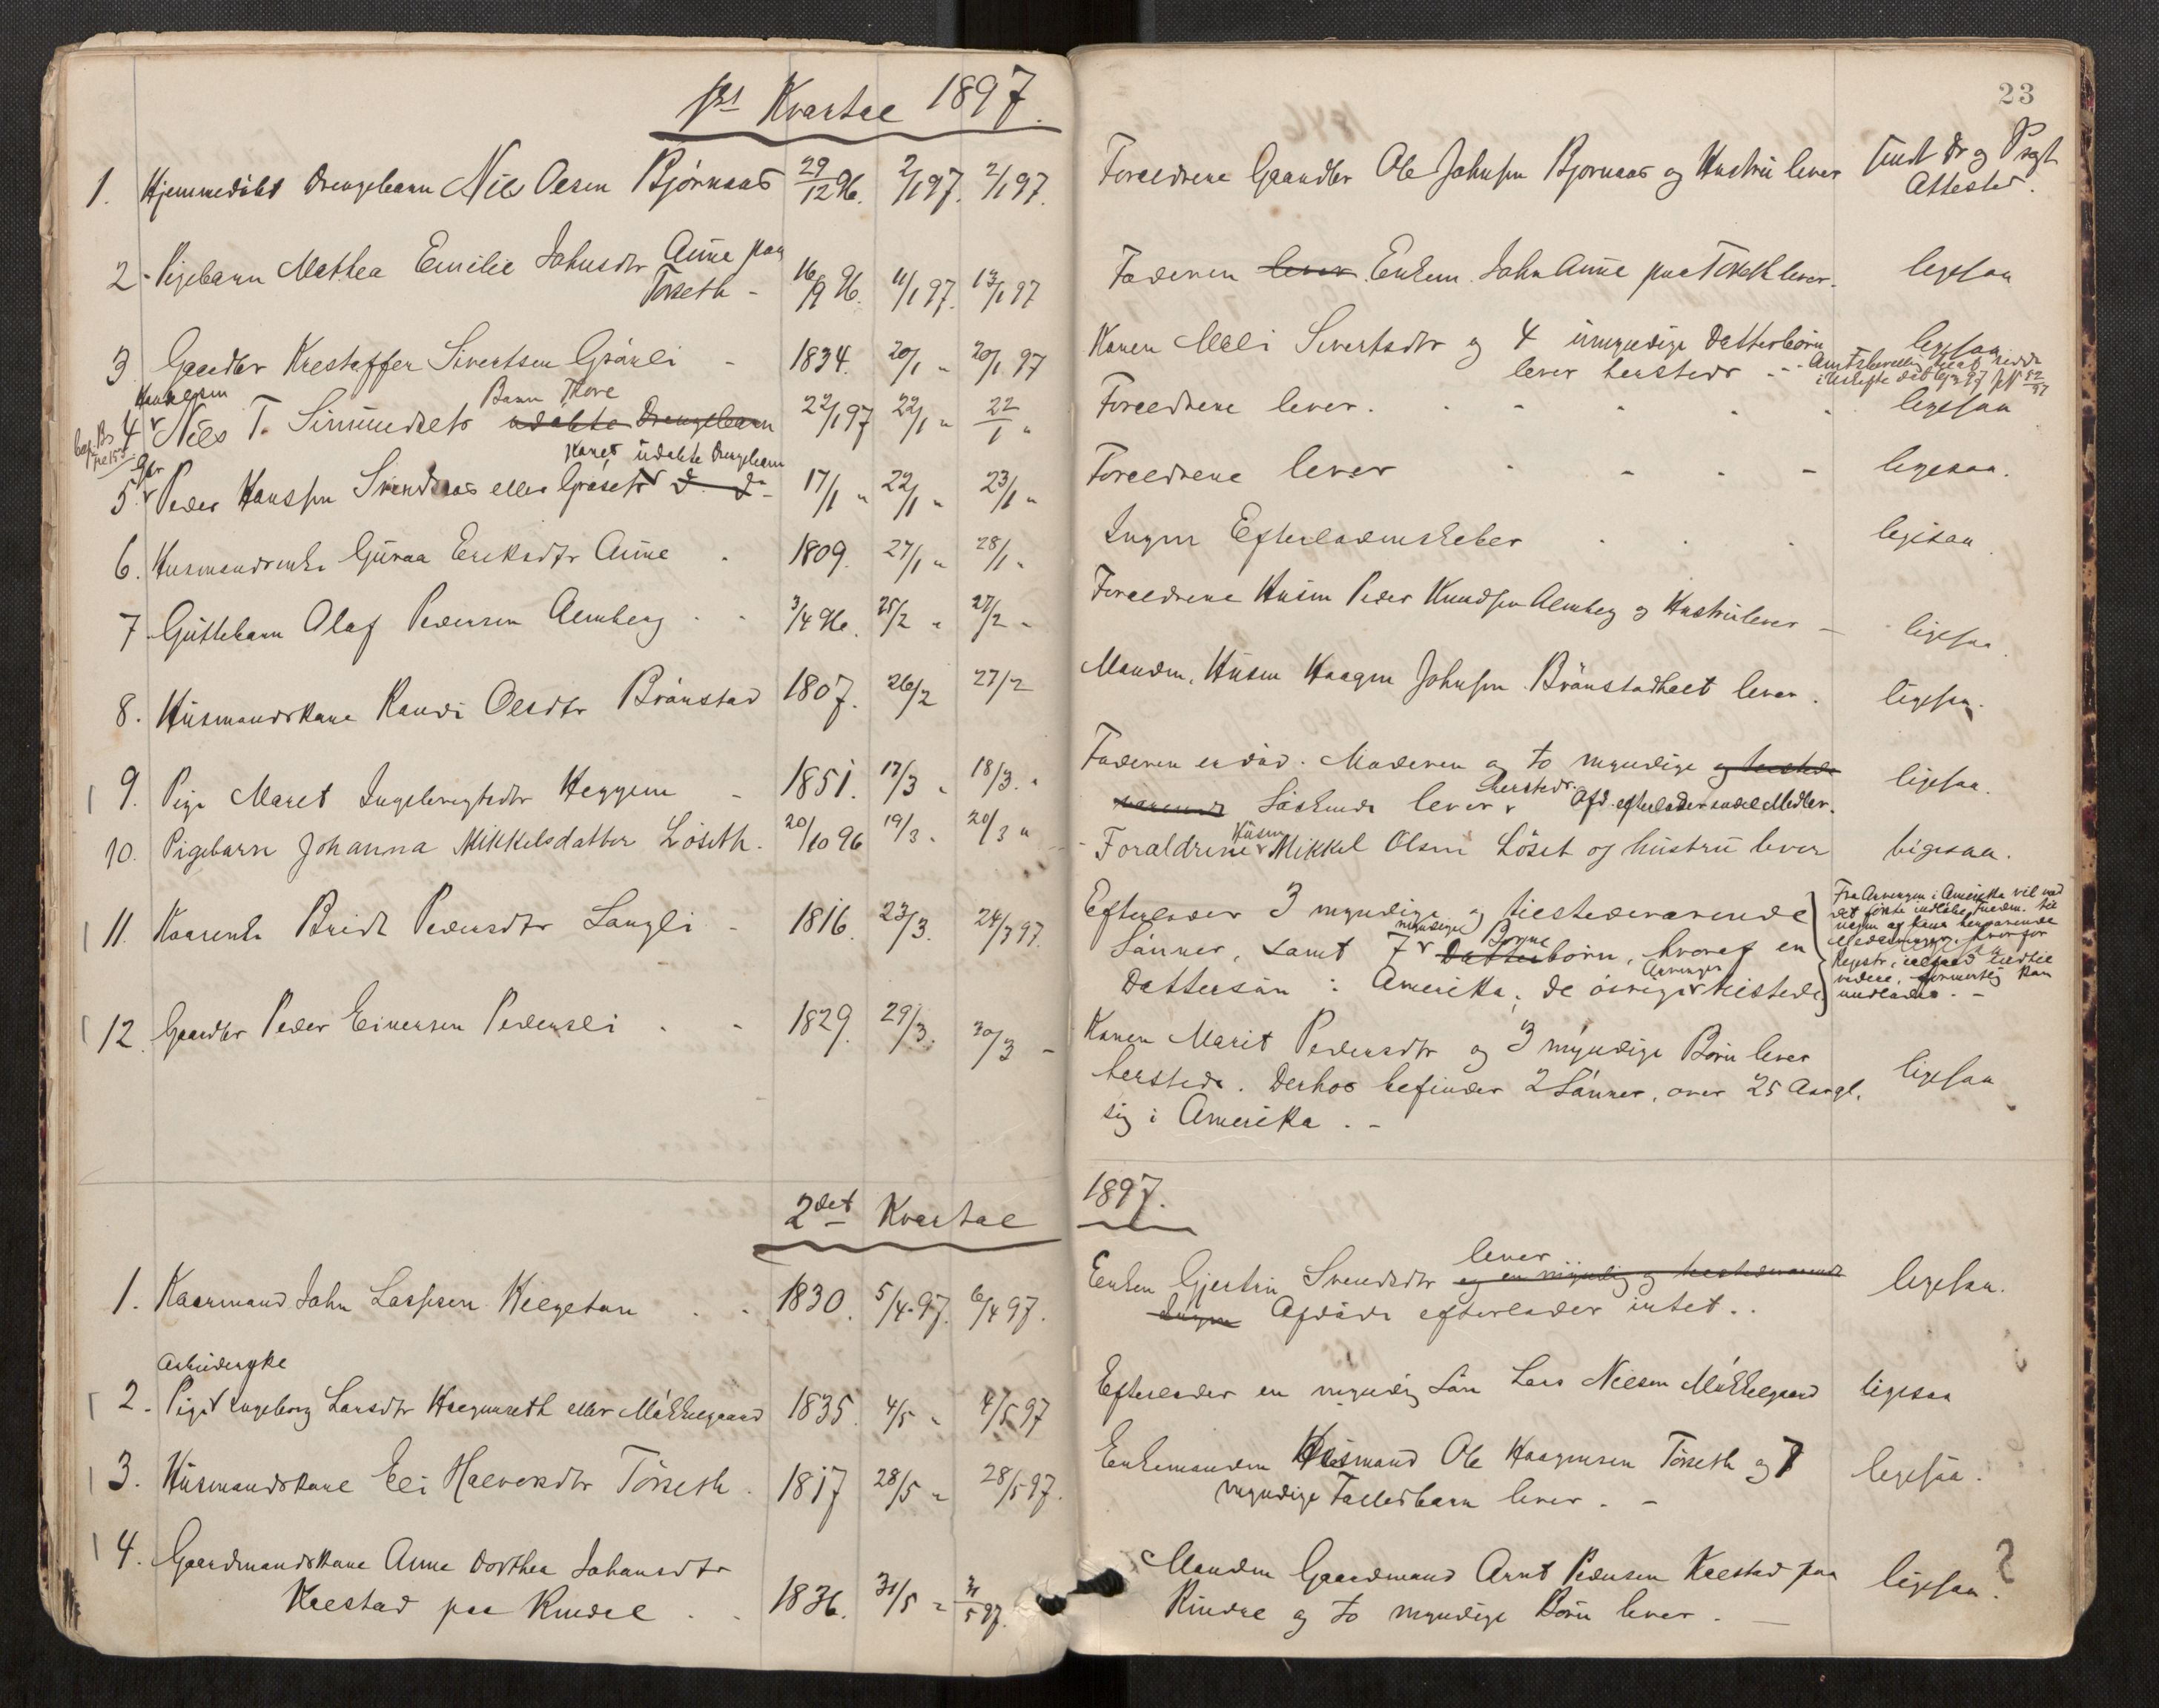 1st Kvartal 1897.
1. Hjemmedøbt Drengebarn Nils Olsen Bjørnaas 29/12 96. 2/1 97. 2/1 97.
2. Pigebarn Mathea Emilie Johnsdtr Aune paa
Torseth - 16/9 96. 11/1 97. 13/1 97
3 Gaardbr Kristoffer Sivertsen Grönli - 1834. 20/1 " 20/1 97
Barn Thore
4 Nils T. udøbte Drengebarn 22/1 97 22/1 " 22/1 "
Gbr Kones udøbte Drengebarn
5 Peder Hansen Svindaas eller Gråset d. d. - 17/1 " 22/1 " 23/1 "
6. Husmandsenke Guroa Eriksdtr Aune . 1809. 27/1 " 28/1 "
7 Guttebarn Olaf Pedersen Almberg . . 3/4 96. 25/2 " 27/2 "
8. Husmandskone Randi Olsdtr Brönstad 1807. 26/2 27/2
9. Pige Maret Ingebrigtsdtr Heggem - 1851. 17/3 " 18/3. "
10. Pigebarn Johanna Mikkelsdatter Löseth. 20/10 96 19/3 " 20/3 "
11. Kaarenke Brit Pedersdtr Langli - 1816. 23/3. 24/3 97.
12. Gaardbr Peder Einersen Pedersli . - 1829. 29/3. 30/3 -
2det Kvartal
1. Kaarmand John Larssen Helgetun . . 1830. 5/4 97. 6/4 97.
2. Pige Ingeborg Larsdtr Haagenseth eller Mökkelgaard 1835. 4/5 " 4/5 97
3. Husmandskone Eli Halvorsdtr Törseth . 1817 28/5 " 28/5 97.
4. Gaardmandskone Anne Dorthea Johansdtr
Kalstad paa Rindal . . 1836. 31/5 " 31/5 97.
23
Forældrene Gaardbr Ole Johnsen Bjørnaas og Hustru lever
Attester.
Faderen lever Enkem. John Aune paa Torseth lever. ligesaa
Konen Mali Sivertsdtr og 4 umyndige Datterbörn ligesaa
lever hersteds -
Forældrene lever. ligesaa
Forældrene lever ligesaa.
Ingen Efterladenskaber ligesaa
Forældrene Husm Peder Knudsen Almberg og Hustru lever - ligesaa.
Manden, Husm Haagen Johnsen Brönstadhalt lever. ligesaa.
Faderen er död. Moderen og to myndige og hersteds ligesaa.
værende Söskende lever hersteds. Afd. efterlader endel Midler.
Forældrene Husm Mikkel Olsen Löset og hustru lever ligesaa.
Efterlader 3 myndige og hiestedeværende
Sönner, samt 7 myndige Datterbörn, hvoraf en
Dattersön i Amerika; de övrige Arvinger hersteds
Konen Marit Pedersdtr og 3 myndige Börn lever ligesaa
hersteds. Derhos befinder 2 Sönner, over 25 Aargl.
sig i Amerika . -
1897.
Enken Gjertru Svendsdtr lever og en myndig og hiestedeværende ligesaa.
Afdöde efterlader intet. .
Efterlader en myndig Sön Lars Nilsen Mökkelgaard ligesaa
Enkemanden Husmand Ole Haagensen Törseth og 7 ligesaa.
myndige Fællesbarn lever. -
Manden Gaardmand Arnt Pedersen Kalstad paa ligesaa.
Rindal og to myndige Börn lever. -